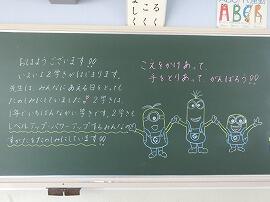 おはようございます!!
いよいよ2学きがはじまります。
先生は、みんなにあえる日をとっても
たのしみにしていました。2学きは、
1年でいちばんながい学きです。2学きも
レベルアップ・パワーアップするみんなの
すがたをたのしみにしています!!
こえをかけあって、
手をとりあって がんばろう!!
G
G
G
ABC